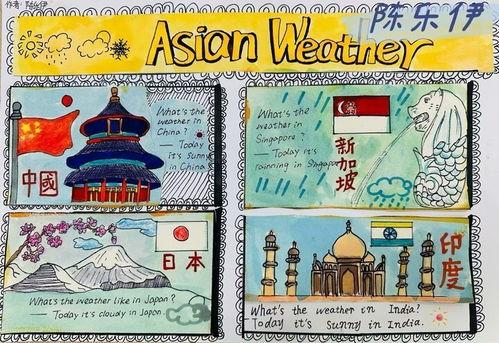 作者:陈乐伊
陈乐伊
Asian Weather
What's the
weather in
China?
— Today
it's sunny
in China.
中國
What's the
weather in
Singapore?
— Today
it's
rainning in Singapore
新加坡
日本
What's the weather like in Japan?
— Today it's cloudy in Japan.
印度
What's the weather in India?
Today it's Sunny in India.